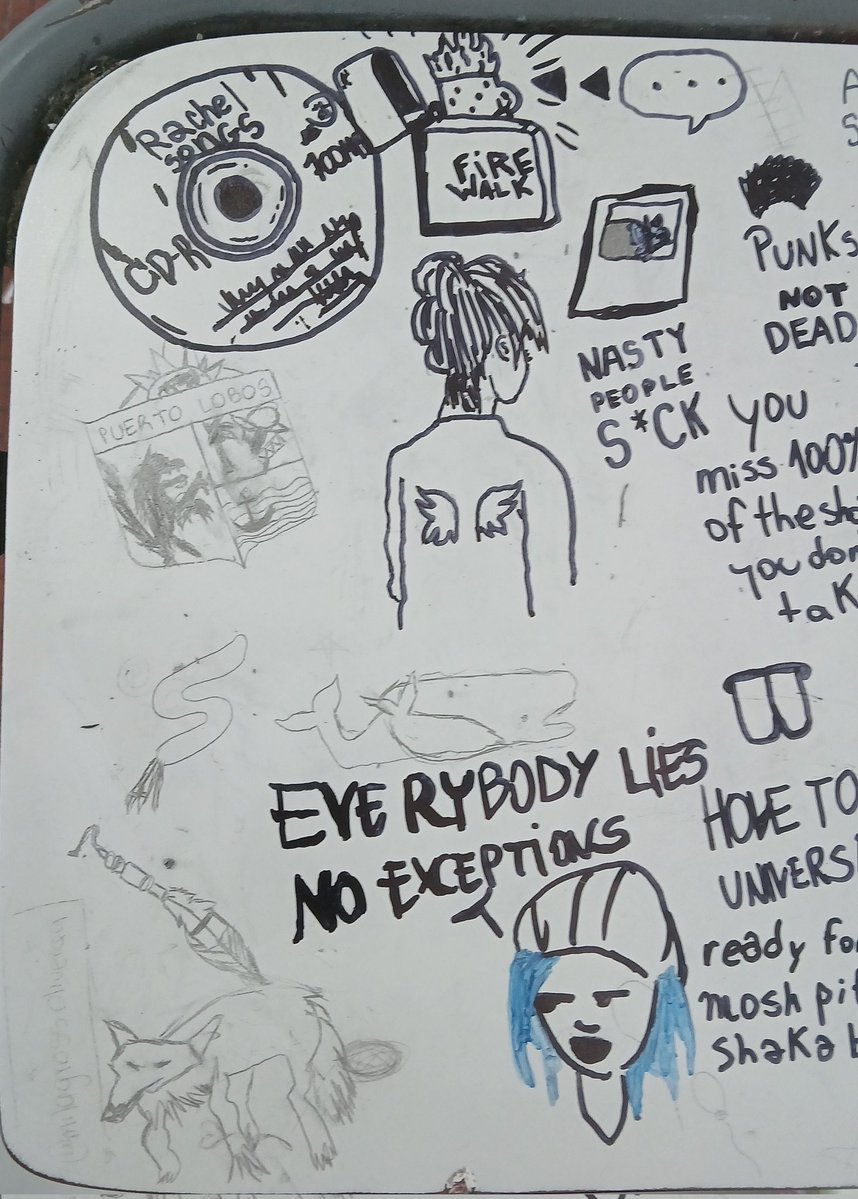 Rachel
SONGS
700MB
CD-R
FIRE
WALK
...
A
S
PUNKS
NOT
DEAD
NASTY
PEOPLE
S*CK YOU
miss 100%
of the sho
you don
tak
PUERTO LOBOS
EVERYBODY LIES
NO EXCEPTIONS
HOVE TO
UNIVERSI
ready for
mosh pit
shaka b